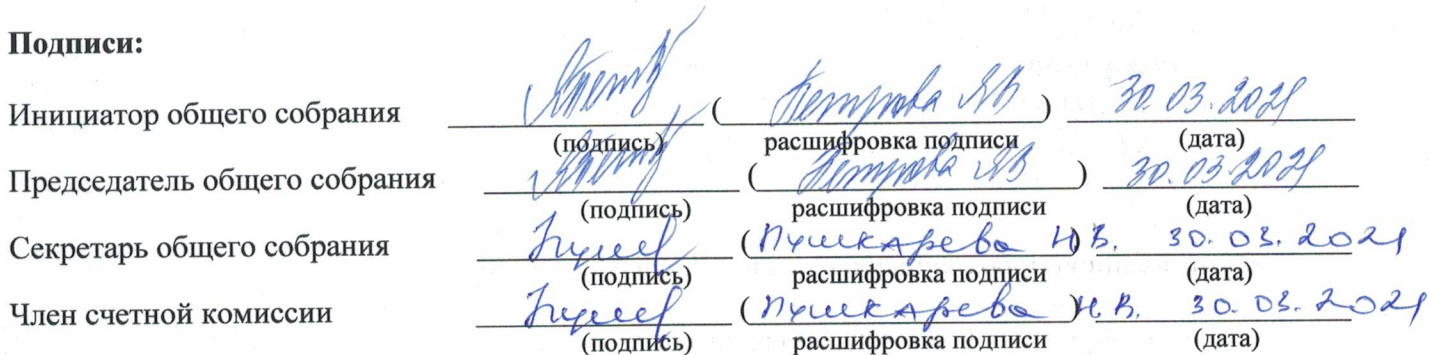 Подписи:
Инициатор общего собрания (Петрова ЯВ) 30.03.2021
(подпись) расшифровка подписи (дата)
Председатель общего собрания (Петрова ЯВ) 30.03.2021
(подпись) расшифровка подписи (дата)
Секретарь общего собрания (Пушкарева Н.В. 30.03.2021
(подпись) расшифровка подписи (дата)
Член счетной комиссии (Пушкарева) Н.В. 30.03.2021
(подпись) расшифровка подписи (дата)